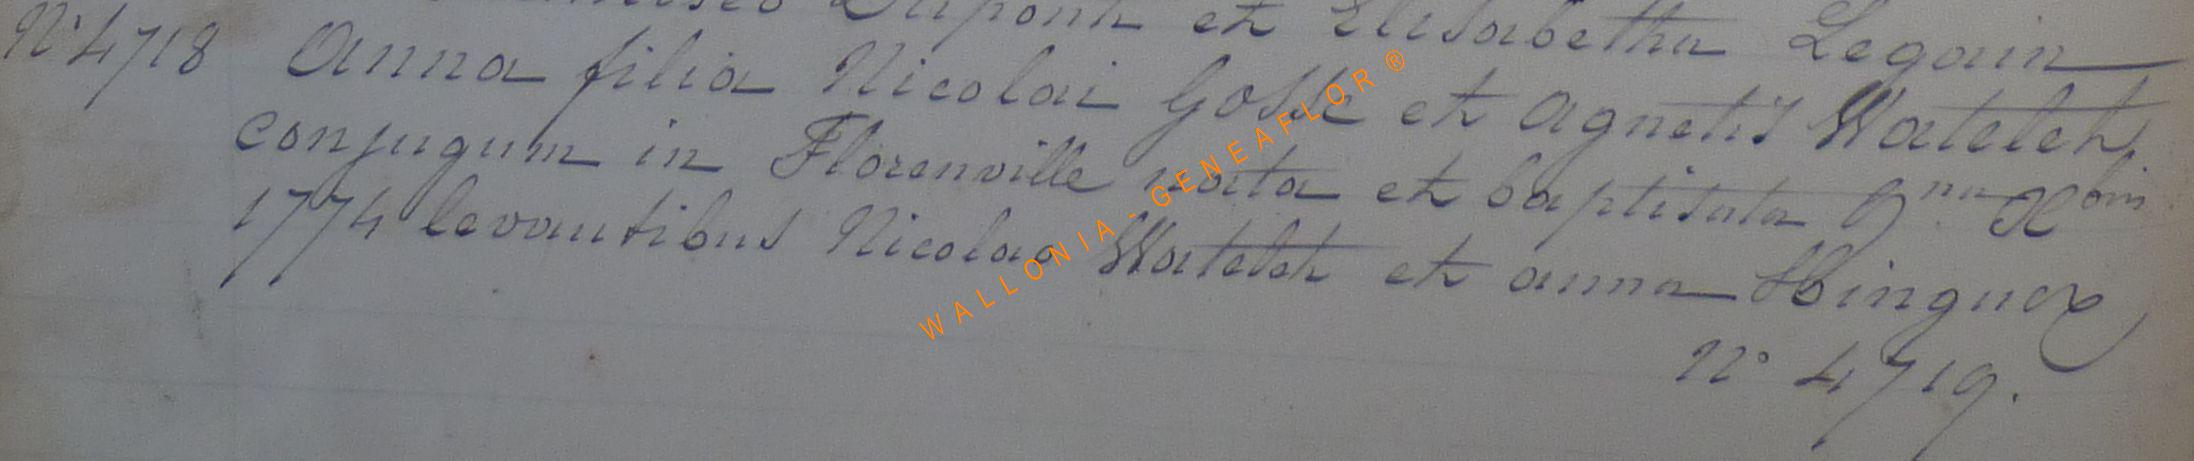 Dupont et Elisabetha Legain
N° 4718 Anna filia Nicolai Gosse et Agnetis Watelet
conjugum in Florenville nata et baptisata 9na Xbris
1774 levantibus Nicolao Watelet et anna Hinguex
N° 4719.
WALLONIA - GENEAFLOR ®